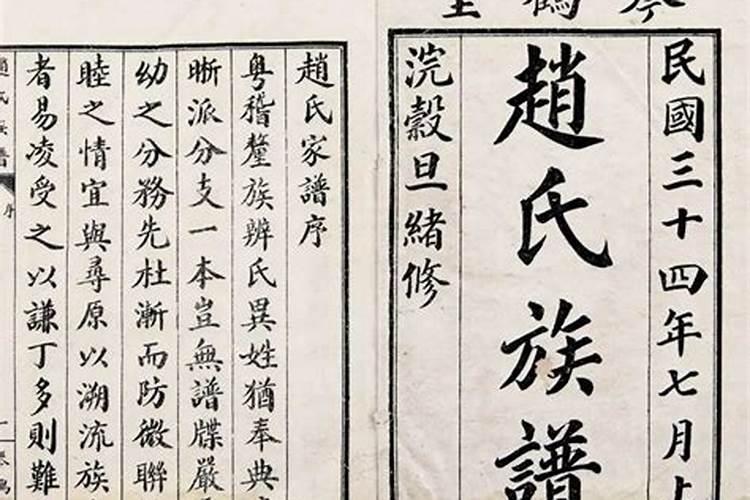 琴鶴堂
民國三十四年七月上
趙氏族譜
浣穀旦緒修
趙氏家譜序
粵稽釐族辨氏異姓猶奉典
晰派分支一本豈無譜牒嚴
幼之分務先杜漸而防微聯
睦之情宜與尋原以溯流族
者易凌受之以謙丁多則難
趙氏族譜
序